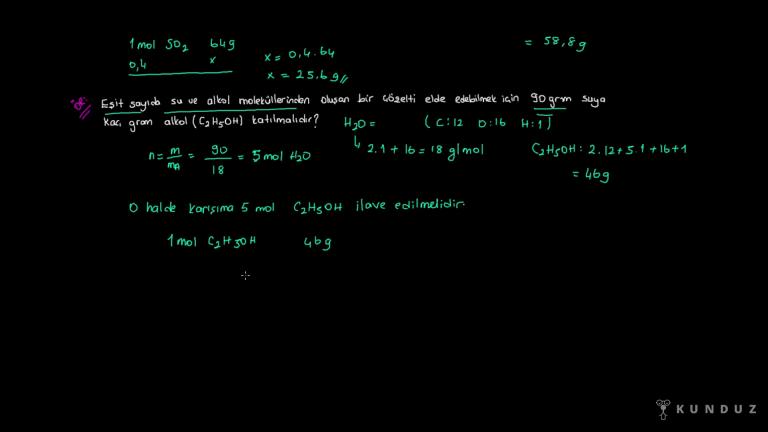 1 mol SO₂ 64g
0,4 x
x = 0,4.64
x = 25.6g
= 58,8g
Eşit sayıda su ve alkol moleküllerinden oluşan bir çözelti elde edebilmek için 90 gram suya
kaç gram alkol (C₂H₅OH) katılmalıdır? H₂O = (C:12 O:16 H:1)
n = m/mA = 90/18 = 5 mol H₂O
2.1 + 16 = 18 g/mol
C₂H₅OH : 2.12 + 5.1 + 16 + 1
= 46g
O halde karışıma 5 mol C₂H₅OH ilave edilmelidir.
1 mol C₂H5OH 46g
KUNDUZ